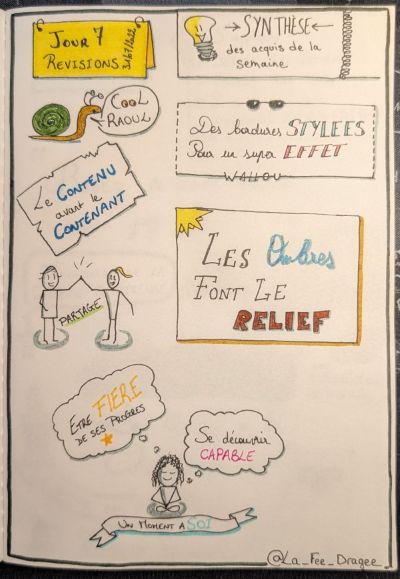 JOUR 7
REVISIONS
31/07/22
→SYNTHÈSE←
des acquis de la
semaine
COOL
RAOUL
Des bordures STYLEES
Pour un super EFFET
WAHOU
Le CONTENU
avant le
CONTENANT
LES Ombres
FONT LE
RELIEF
PARTAGE
ETRE FIERE
DE SES PROGRES
Se découvrir
CAPABLE
UN MOMENT A SOI
@La_Fee_Dragee_